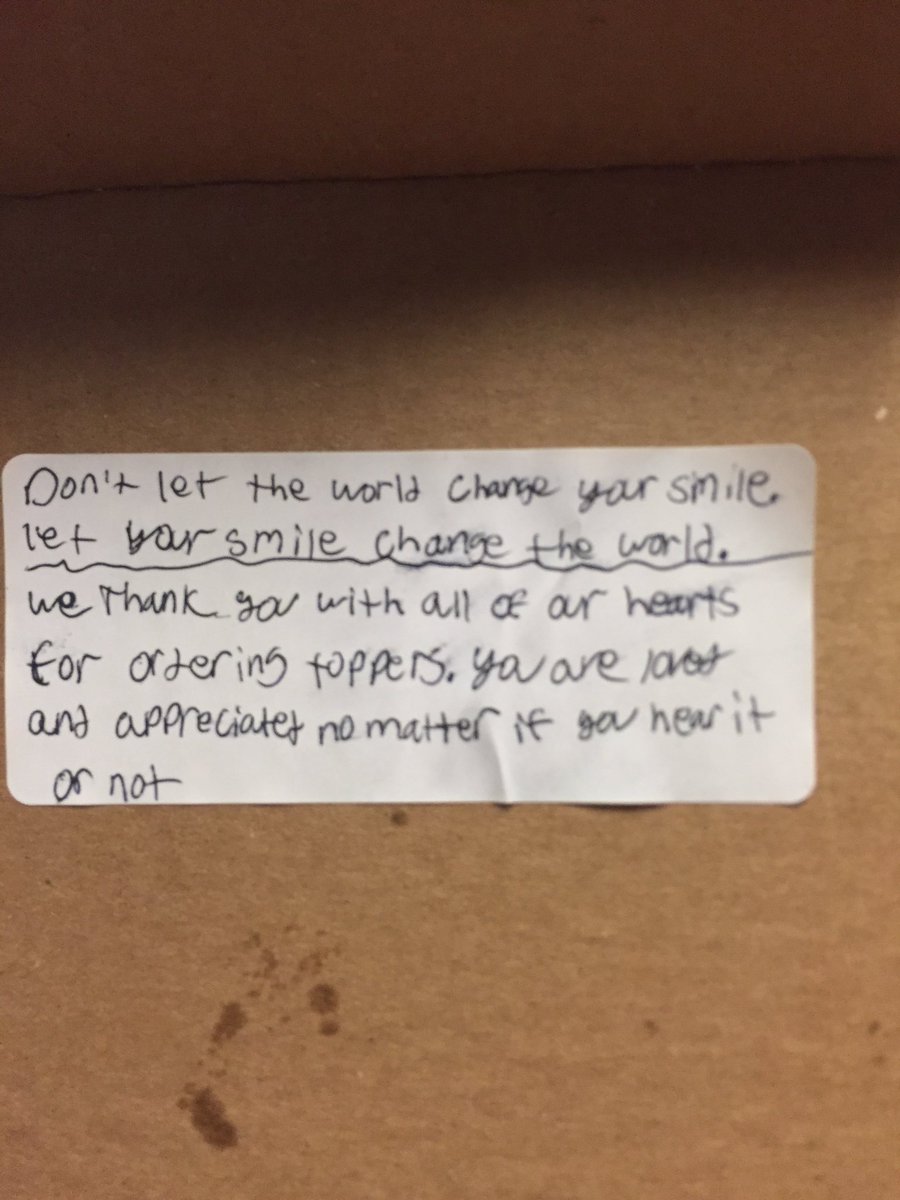 Don't let the world change your smile.
let your smile change the world.
we Thank you with all of our hearts
for ordering toppers. you are loved
and appreciated no matter if you hear it
or not